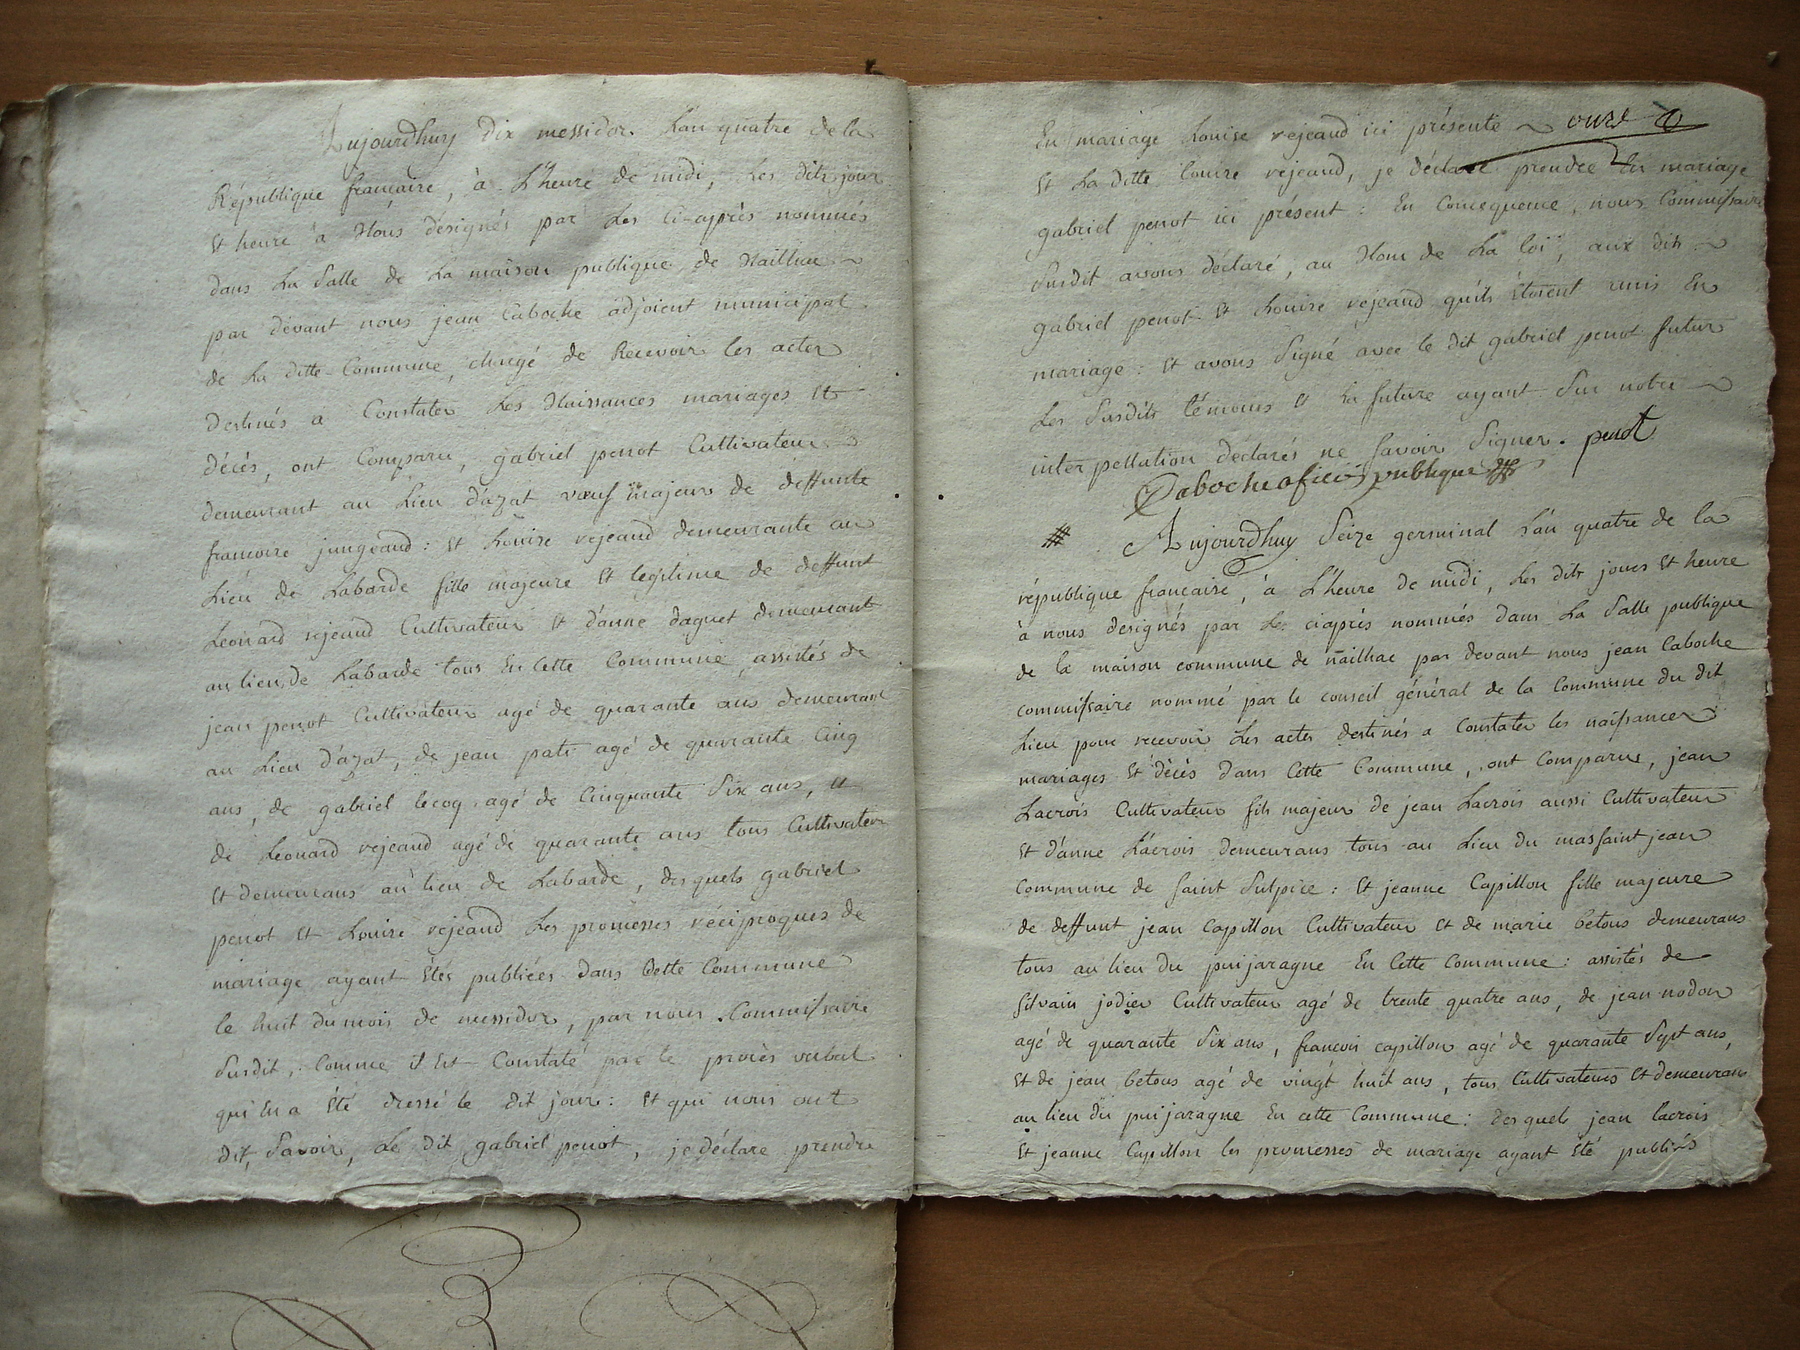 Aujourdhuy dix messidor L'an quatre de la
République francaire, à L'heure de midi, Les dits jour
Et heure à Nous désignés par Les ci-après nommés
dans La Salle de La maison publique de Naillac
par dévant nous jean Caboche adjoient municipal
de La ditte Commune, chargé de Recevoir les actes
destinés à Constater Les Naissances mariages Et
décès, ont Comparu, gabriel penot Cultivateur
demeurant au Lieu d'azat veuf majeur de deffunte
francoise jungeaud : Et Louise rejeaud demeurante au
Lieu de Labarde fille majeure Et legitime de deffunt
Leonard rejeaud Cultivateur Et d'anne daguet demeurant
au lieu de Labarde tous En Cette Commune, assistés de
jean penot Cultivateur agé de quarante ans demeurant
au Lieu d'azat, de jean pati agé de quarante Cinq
ans, de gabriel lecoq agé de Cinquante Six ans, Et
de Leonard rejeaud agé de quarante ans tous Cultivateur
Et demeurans au lieu de Labarde, desquels gabriel
penot Et Louise rejeaud Les promesses réciproques de
mariage ayant Etés publiées dans Cette Commune
le huit du mois de messidor, par nous Commissaire
Susdit, Comme il Est Constaté par le procès verbal
qui En a Eté dressé le dit jour : Et qui nous ont
dit, Savoir, Le dit gabriel penot, je déclare prendre
En mariage Louise rejeaud ici présente onze
Et La ditte Louise rejeaud, je déclare prendre En mariage
gabriel penot ici présent : En Concequence, nous Commissaire
Susdit avons déclaré, au Nom de La loi, aux dits
gabriel penot Et Louise rejeaud qu'ils Etoient unis En
mariage : Et avons Signé avec le dit gabriel penot futur
Les Susdits témoins Et La future ayant Sur notre
interpellation déclarés ne Savoir Signer. penot
Caboche oficié publique
# Aujourdhuy Seize germinal L'an quatre de la
république francaire, à L'heure de midi, Les dits jours Et heure
à nous designés par Les ciaprés nommés dans La Salle publique
de la maison commune de nailhac par devant nous jean Caboche
commissaire nommé par le conseil général de la Commune du dit
Lieu pour recevoir Les actes destinés a Constater les naissances
mariages Et décès dans Cette Commune, ont Comparus, jean
Lacrois Cultivateur fils majeur de jean Lacrois aussi Cultivateur
Et d'anne Lacrois demeurans tous au Lieu du massaint jean
Commune de saint Sulpice : Et jeanne Capillon fille majeure
de deffunt jean Capillon Cultivateur Et de marie betous demeurans
tous au lieu du puijaragne En Cette Commune : assistés de
Silvain jodier Cultivateur agé de trente quatre ans, de jean nodon
agé de quarante Six ans, francois capillon agé de quarante Sept ans,
Et de jean betous agé de vingt huit ans, tous Cultivateurs Et demeurans
au lieu du puijaragne En cette Commune : desquels jean lacrois
Et jeanne Capillon les promesses de mariage ayant Eté publiés